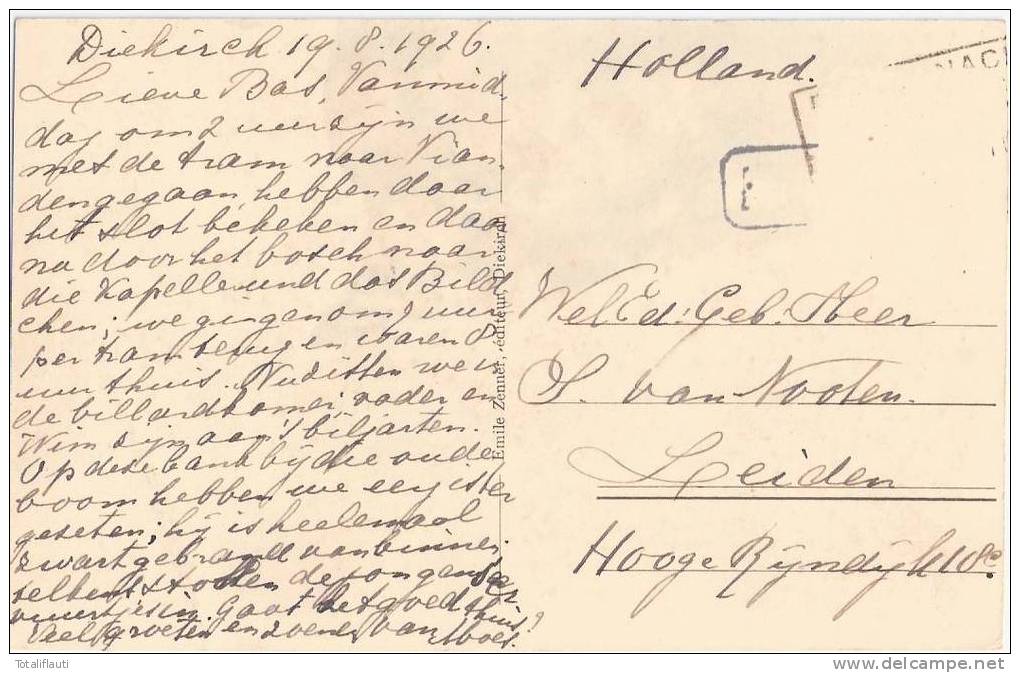 Diekirch 19.8.1926.
Lieve Bas, Vanmid-
dag om 2 uur zijn we
met de tram naar Vian
den gegaan, hebben daar
het slot bekeken en daar
na door het bosch naar
die Kapelle und das Bild
chen; we gingen om 7 uur
per tram terug en waren 8
uur thuis. Nu zitten we in
de billardkamer, vader en
Wim zijn aan 's biljarten.
Op deze bank bij die oude
boom hebben we eergister
gezeten; hij is heelemaal
zwart gebrand van binnen.
stoken de jongens er
vuurtjes in. Gaat het goed thuis?
Veel groeten en zoenen van Moes.
Emile Zenner, éditeur, Diekirch
Holland.
NACH
Wel Ed: Geb. Heer
S. van Nooten.
Leiden
Hooge Rijndijk 10c.
Totaliflauti
http://www.delcampe.net